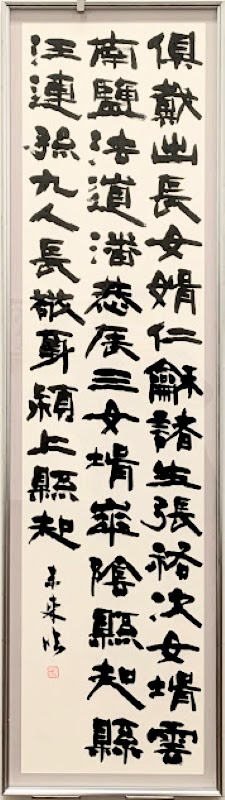 俱戴出長女婿仁龢諸生張祐次女壻雲
南鹽法道潘恭辰三女壻崋陰縣知縣
汪連孫九人長敬身潁上縣知